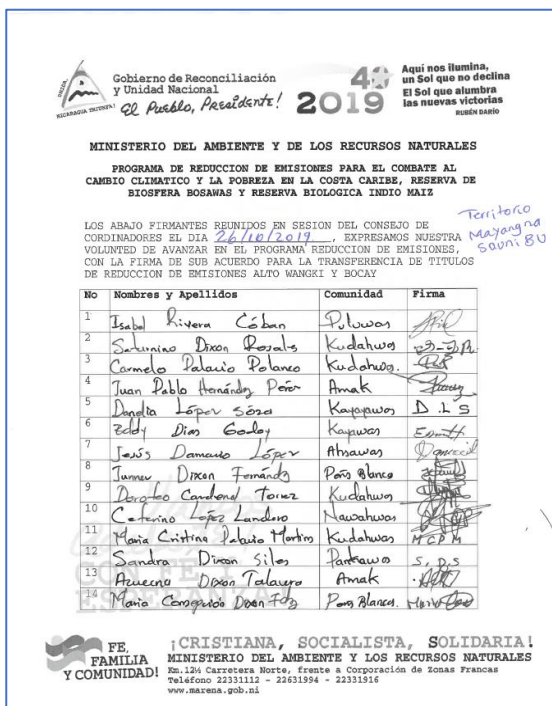 UNIDA, NICARAGUA TRIUNFA!
Gobierno de Reconciliación
y Unidad Nacional
El Pueblo, Presidente!
40
2019
Aquí nos ilumina,
un Sol que no declina
El Sol que alumbra
las nuevas victorias
RUBÉN DARÍO
MINISTERIO DEL AMBIENTE Y DE LOS RECURSOS NATURALES
PROGRAMA DE REDUCCION DE EMISIONES PARA EL COMBATE AL
CAMBIO CLIMATICO Y LA POBREZA EN LA COSTA CARIBE, RESERVA DE
BIOSFERA BOSAWAS Y RESERVA BIOLOGICA INDIO MAIZ
Territorio
Mayangna
Sauni Bu
LOS ABAJO FIRMANTES REUNIDOS EN SESION DEL CONSEJO DE
CORDINADORES EL DIA 26/10/2019, EXPRESAMOS NUESTRA
VOLUNTED DE AVANZAR EN EL PROGRAMA REDUCCION DE EMISIONES,
CON LA FIRMA DE SUB ACUERDO PARA LA TRANSFERENCIA DE TITULOS
DE REDUCCION DE EMISIONES ALTO WANGKI Y BOCAY
No Nombres y Apellidos Comunidad Firma
1 Isabel Rivera Cóban Puluwas
2 Saturnino Dixon Rosales Kudahwas
3 Carmelo Palacio Polanco Kudahwas.
4 Juan Pablo Hernández Amak
5 Danelia López Sosa Kayayawas D. L S
6 Eddy Dias Godoy Kayawas
7 Jesús Damacio López Ahsawas
8 Dixon Fernández Pons Blanco
9 Doroteo Cardenal Torrez Kudahwas
10 Ceferino López Landero Nawahwas
11 Maria Cristina Palacio Martins Kudahwas M C P M
12 Sandra Dixon Siles Pankawas S. D. S
13 Azucena Dixon Talavera Amak
14 Maria Concepción Dixon Pons Blanco. Maria
FE,
FAMILIA
Y COMUNIDAD!
¡CRISTIANA, SOCIALISTA, SOLIDARIA!
MINISTERIO DEL AMBIENTE Y LOS RECURSOS NATURALES
Km.12½ Carretera Norte, frente a Corporación de Zonas Francas
Teléfono 22331112 - 22631994 - 22331916
www.marena.gob.ni